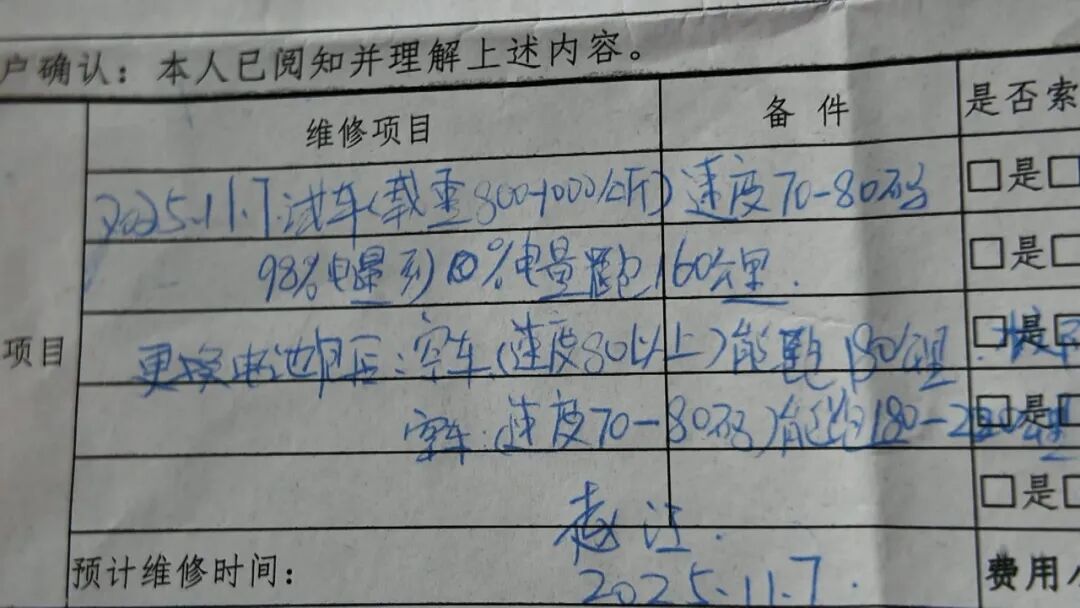 户确认：本人已阅知并理解上述内容。
维修项目 备件 是否索
2025.11.7.试车(载重800-1000公斤)速度70-80码 是
98%电量到10%电量跑160公里. 是
项目
更换电池包后：空车(速度80以上)能跑180公里. 是
空车：(速度70-80码)能跑180-200公里 是
是
赵江.
预计维修时间：
2025.11.7.
费用